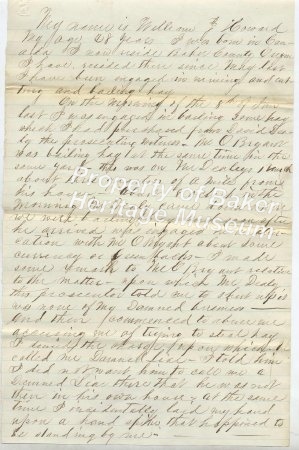 My name is William F Howard
My age 28 Years I was born in Can-
ada I now reside Baker County Oregon
I have resided there since May last
I have been engaged in mining and cut
ting and baling hay
On the Morning of the 8th of
last I was engaged in loading some hay
which I had purchased from David Dea
ly the prosecuting witness. Mr O Bryant
was baling hay at the same time in the
same yard this was on Mr Dealeys ranch
about three of a mile from
his house About 9 o'clock in the
Morning Mr Dealy came to where
we were baling hay soon after
he arrived we engaged in conver-
sation with Mr O Bryant about some
currency or Greenbacks - I made
some remark to Mr O Bryant relative
to the matter - upon which Mr Dealy
this prosecutor told me to shut up it
was none of My Damned business
And then commenced to abuse me
accusing me of trying to steal hay
I denied the charge upon which he
called Me Damned Liar - I told him
I did not want him to call me a
Damned Liar there that he was not
then in his own house; at the same
time I incidentally laid my hand
upon a hand spike that happened to
be standing by me -
Property of Baker
Heritage Museum